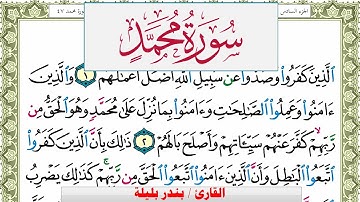 الجزء السادس
سورة محمد ٤٧
سُورَةُ مُحَمَّدٍ
ٱلَّذِينَ كَفَرُوا۟ وَصَدُّوا۟ عَن سَبِيلِ ٱللَّهِ أَضَلَّ أَعْمَٰلَهُمْ ١ وَٱلَّذِينَ
ءَامَنُوا۟ وَعَمِلُوا۟ ٱلصَّٰلِحَٰتِ وَءَامَنُوا۟ بِمَا نُزِّلَ عَلَىٰ مُحَمَّدٍ وَهُوَ ٱلْحَقُّ مِن
رَّبِّهِمْ كَفَّرَ عَنْهُمْ سَيِّـَٔاتِهِمْ وَأَصْلَحَ بَالَهُمْ ٢ ذَٰلِكَ بِأَنَّ ٱلَّذِينَ كَفَرُوا۟
ٱتَّبَعُوا۟ ٱلْبَٰطِلَ وَأَنَّ ٱلَّذِينَ ءَامَنُوا۟ ٱتَّبَعُوا۟ ٱلْحَقَّ مِن رَّبِّهِمْ كَذَٰلِكَ يَضْرِبُ
القارئ / بندر بليلة